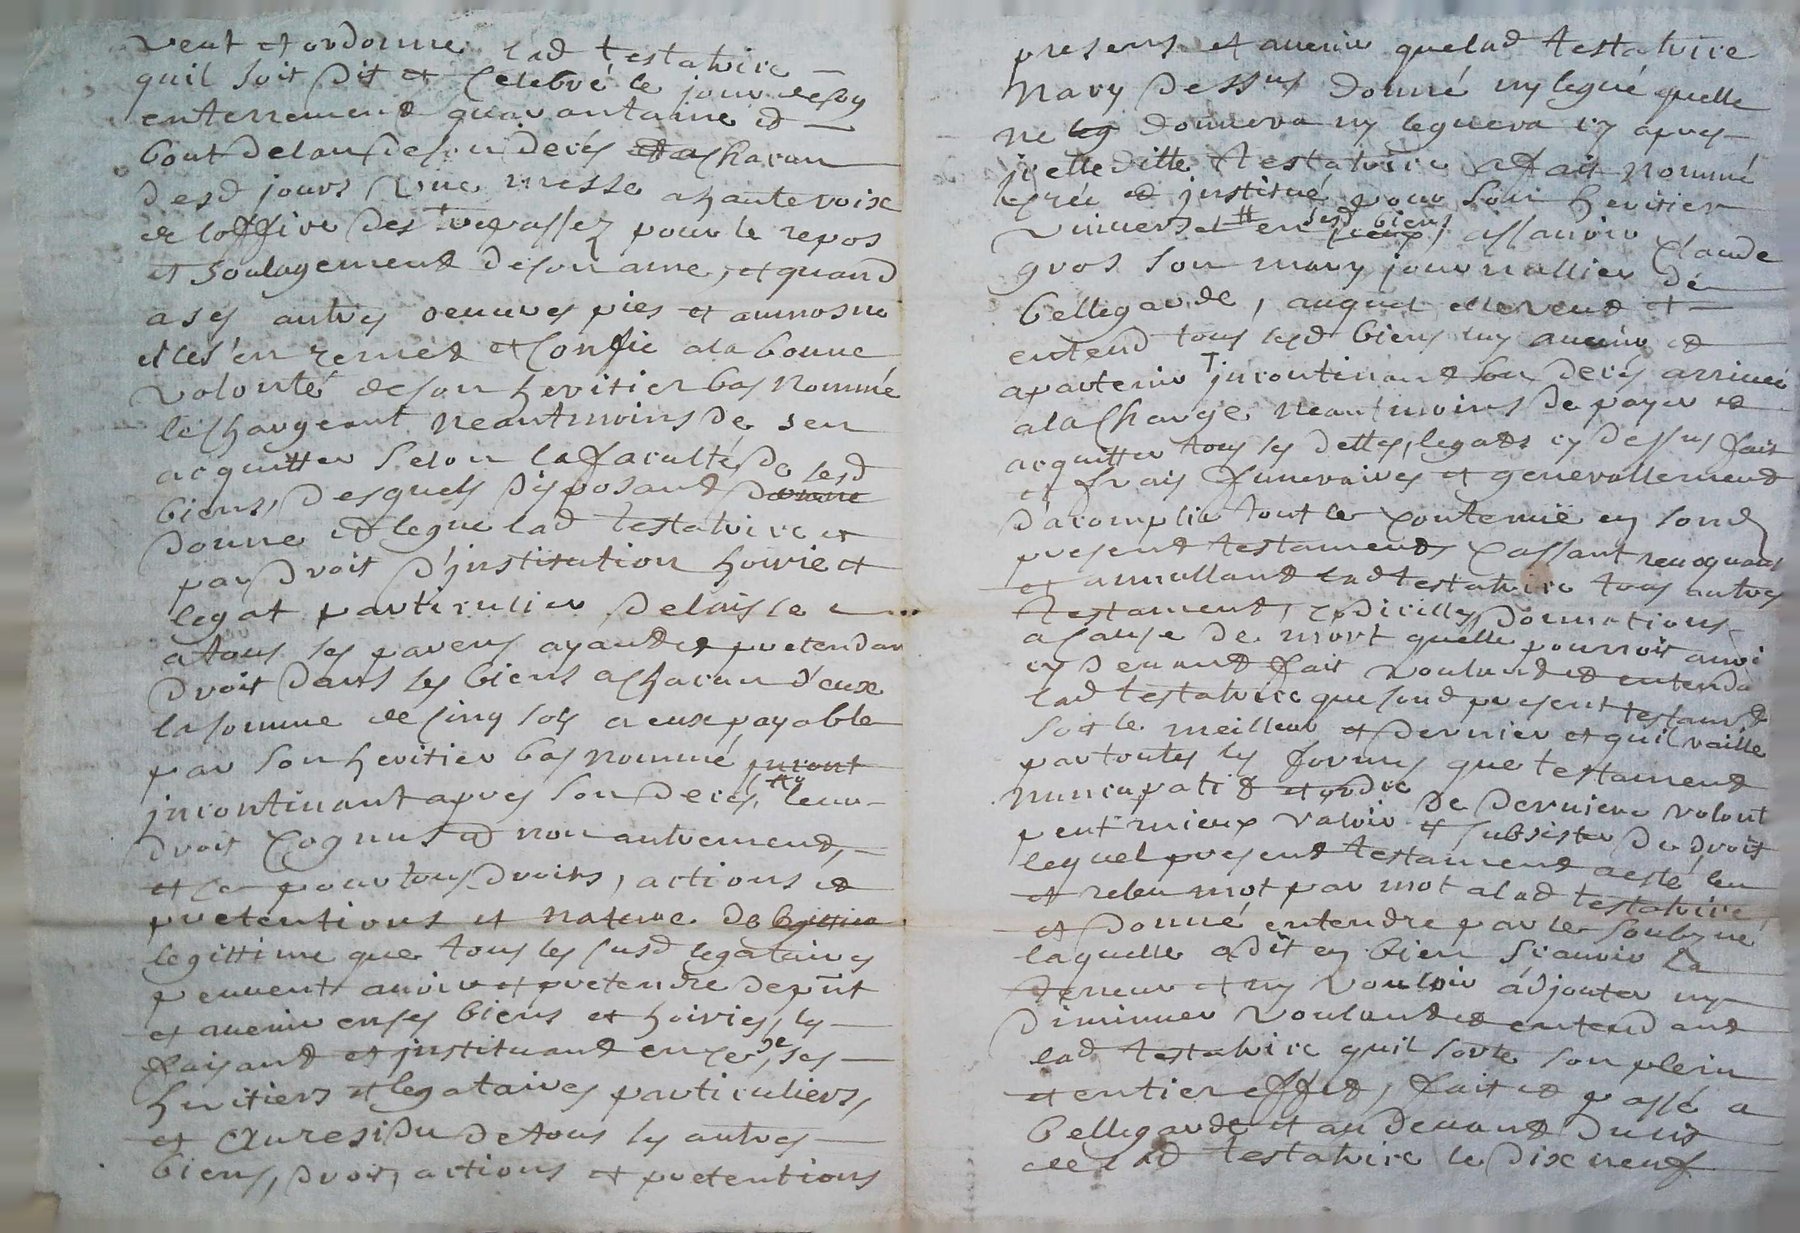 veut et ordonne lad testatrice
quil soit dit et celebré le jour de son
enterrement quarantaine et
bout delan de son deces et a chacun
desd jours une messe a haute voix
et loffice des trepassez pour le repos
et soulagement de son ame, et quand
a ses autres oeuvres pies et aumosne
elle s'en remet et confie a la bonne
volonté de son heritier bas nommé
le chargeant neantmoins de sen
acquitter selon la faculté de sesd
biens, desquels disposant
donne et legue lad testatrice et
par droit d'jnstitution hoirie et
legat particulier delaisse
a tous ses parens ayant et pretendan
droit dans ses biens a chacun d'eux
la somme de cinq sols a eux payable
par son heritier bas nommé
jncontinant apres son deces, leur
droit cognus et non autrement,
et ce pour tous droits, actions et
pretentions et nature de
legittime que tous les susd legataires
peuvent avoir et pretendre de pnt
et avenir en ses biens et hoiries, les
faisant et jnstituant en ce de, ses
heritiers et legataires particuliers,
et au residu de tous ses autres
biens, droit, actions et pretentions
presens et avenir que lad testatrice
na cy dessus donné ny legué quelle
ne leg donnera ny leguera cy apres
jcelle ditte testatrice a fait nommé
creé et jnstitué pour son heritier
universel en sesd biens, assavoir Claude
gros son mary journallier de
bellegarde, auquel elle veut et
entend tous sesd biens luy avenir et
apartenir jncontinant son deces arrivé
a la charge neantmoins de payer et
acquitter tous ses dettes, legats cy dessus fait
et frais funeraires et generallement
d'acomplir tout le contenue en sond
present testament cassant revoquant
et annullant lad testatrice tous autres
testament, codicilles, donnations
a cause de mort quelle pourroit avoi
cy devant fait voulant et entenda
lad testatrice que sond present testamt
soit le meilleur et dernier et quil vaille
par toutes les formes que testament
nuncupatif et ordre de derniere volont
peut mieux valoir et subsister de droit
lequel present testament a esté leu
et releu mot par mot a lad testatrice
et donné entendre par le soubsigné
laquelle a dit en bien scavoir la
teneur et ny vouloir adjouter ny
diminuer voulant et entendant
lad testatrice quil sorte son plein
et entier effet, fait et passé a
bellegarde et au devant
de lad testatrice le dix neuf